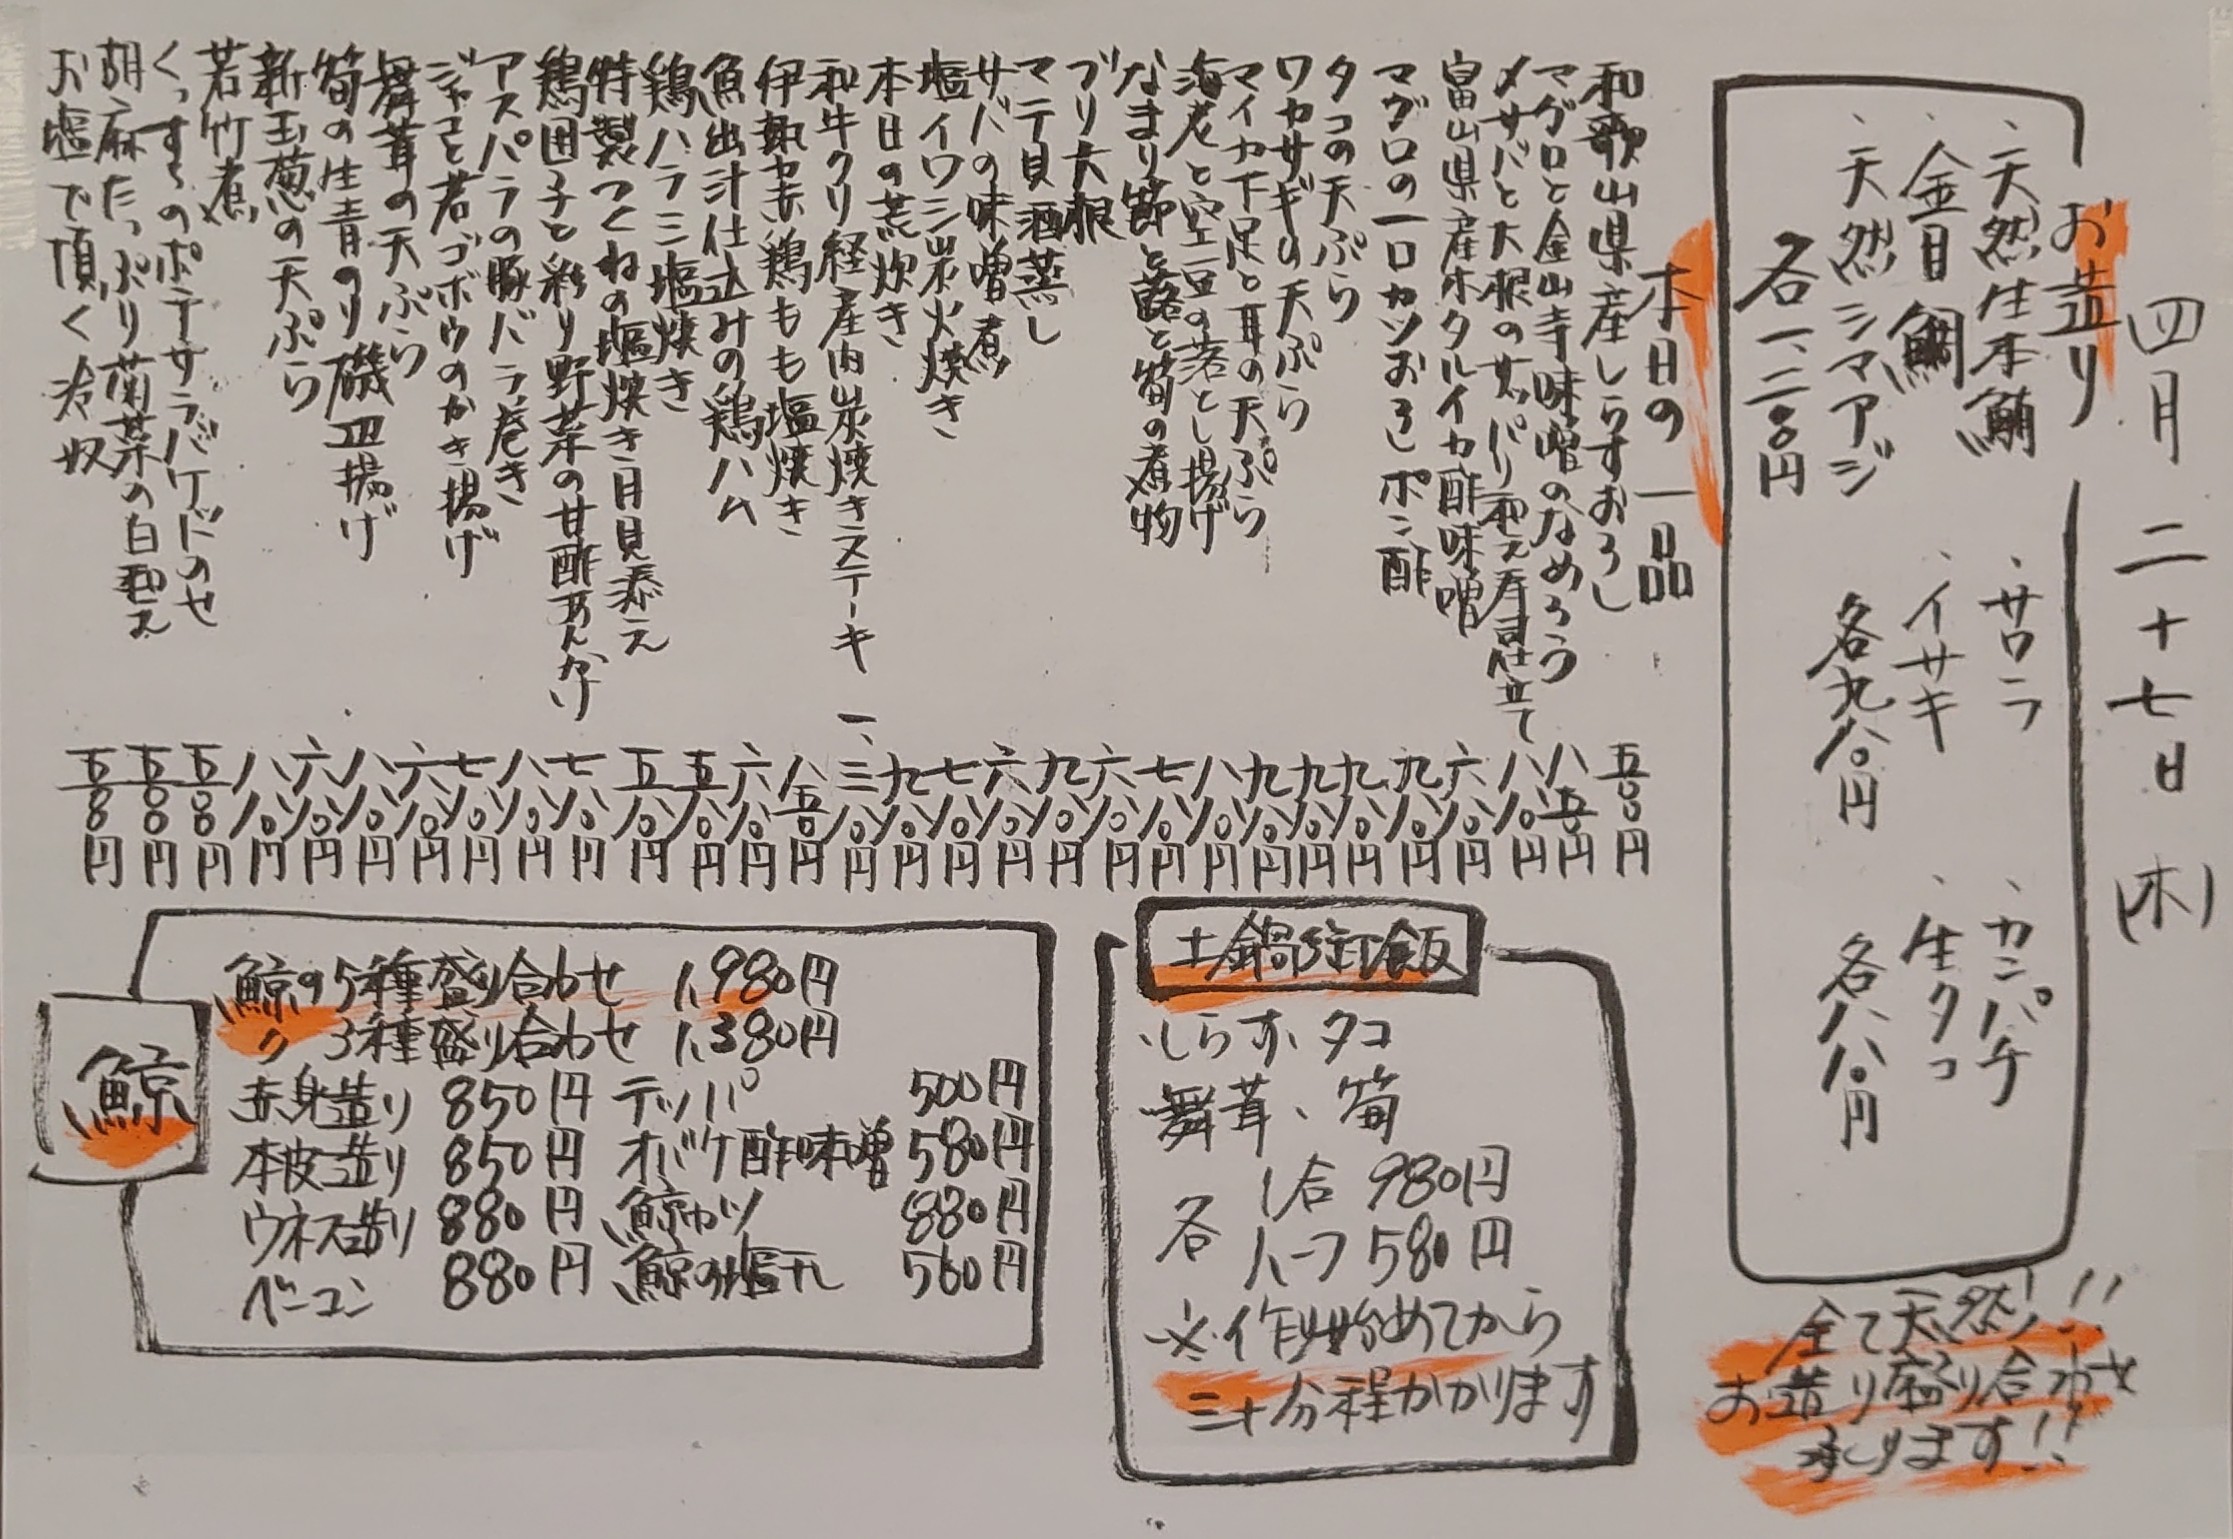 四月二十七日(木)
お造り
、天然生本鮪
、金目鯛
、天然シマアジ
各一、二八〇円
、サワラ
、イサキ
各九八〇円
、カンパチ
、生タコ
各八八〇円
全て天然!!
お造り盛り合わせ
承ります!!
本日の一品
和歌山県産しらすおろし 五八〇円
マグロと金山寺味噌のなめろう 八五〇円
〆サバと大根のサッパリ和え寿司仕立て 八八〇円
富山県産ホタルイカ酢味噌 六八〇円
マグロの一口カツおろしポン酢 九八〇円
タコの天ぷら 九八〇円
ワカサギの天ぷら 九八〇円
マイカ下足と耳の天ぷら 九八〇円
海老と空豆の落とし揚げ 八八〇円
なまり節と蕗と筍の煮物 七八〇円
ブリ大根 六八〇円
マテ貝酒蒸し 九八〇円
サバの味噌煮 六八〇円
塩イワシ炭火焼き 七八〇円
本日の荒炊き 九八〇円
和牛クリ経産肉炭焼きステーキ 一、三八〇円
伊勢赤鶏もも塩焼き 八五〇円
魚出汁仕込みの鶏ハム 六八〇円
鶏ハラミ塩焼き 五八〇円
特製つくねの塩焼き月見添え 五八〇円
鶏団子と彩り野菜の甘酢あんかけ 七八〇円
アスパラの豚バラ巻き 八八〇円
ジャコと若ゴボウのかき揚げ 七八〇円
舞茸の天ぷら 六八〇円
筍の生青のり磯辺揚げ 八八〇円
新玉葱の天ぷら 六八〇円
若竹煮 八八〇円
くっすんのポテサラバケッドのせ 五八〇円
胡麻たっぷり菊菜の白和え 五八〇円
お塩で頂く冷奴 五八〇円
土鍋御飯
、しらす、タコ
舞茸、筍
各 1合 980円
ハーフ 580円
※作り始めてから
三十分程かかります
鯨
鯨の5種盛り合わせ 1,980円
〃 3種盛り合わせ 1,380円
赤身造り 850円 テッパ 500円
本皮造り 850円 オバケ酢味噌 580円
ウネス造り 880円 鯨カツ 880円
ベーコン 880円 鯨の塩干し 560円